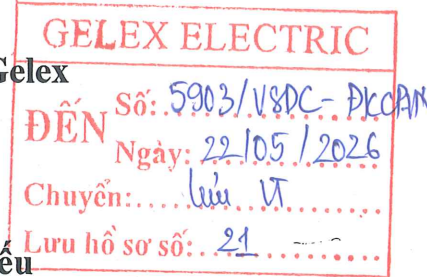 GELEX ELECTRIC
Gelex
ĐẾN
Số: 5903/VSDC-ĐKCP.NV
Ngày: 22/05/2026
Chuyển: Lưu VT
Lưu hồ sơ số: 21
ếu